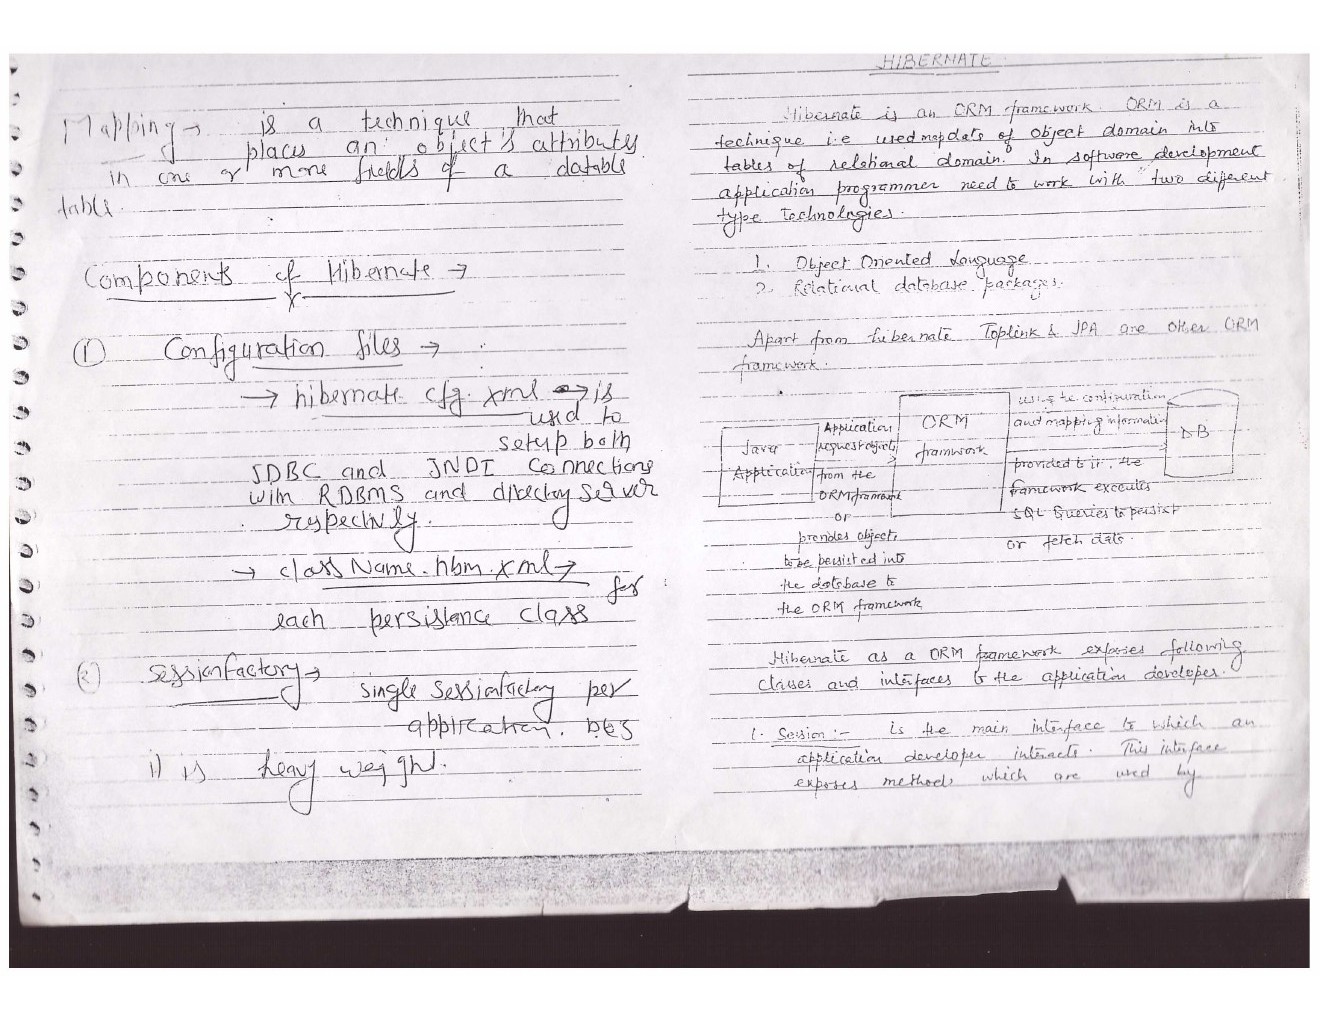 Mapping → is a technique that
places an object's attributes
in one or more fields of a datable
table.
Components of Hibernate →
① Configuration files →
→ hibernate cfg. xml → is
used to
setup both
JDBC and JNDI Connections
with RDBMS and directory server
respectively.
→ class Name. hbm. xml →
for
each persistance class
② Sessionfactory →
Single Sessionfactory per
application.
it is heavy weight.
HIBERNATE
Hibernate is an ORM framework. ORM is a
technique i.e used map data of object domain into
tables of relational domain. In software development
application programmer need to work with two different
type technologies.
1. Object Oriented Language
2. Relational database packages.
Apart from hibernate Toplink & JPA are other ORM
framework.
Java
Application
Application
request objects
from the
ORM framework
or
provides objects
to be persisted into
the database to
the ORM framework
ORM
framwork
using the configuration
and mapping information
provided to it, the
framework executes
SQL Queries to persist
or fetch data.
DB
Hibernate as a ORM framework exposes following
classes and interfaces to the application developer.
1. Session :- is the main interface to which an
application developer interacts. This interface
exposes methods which are used by